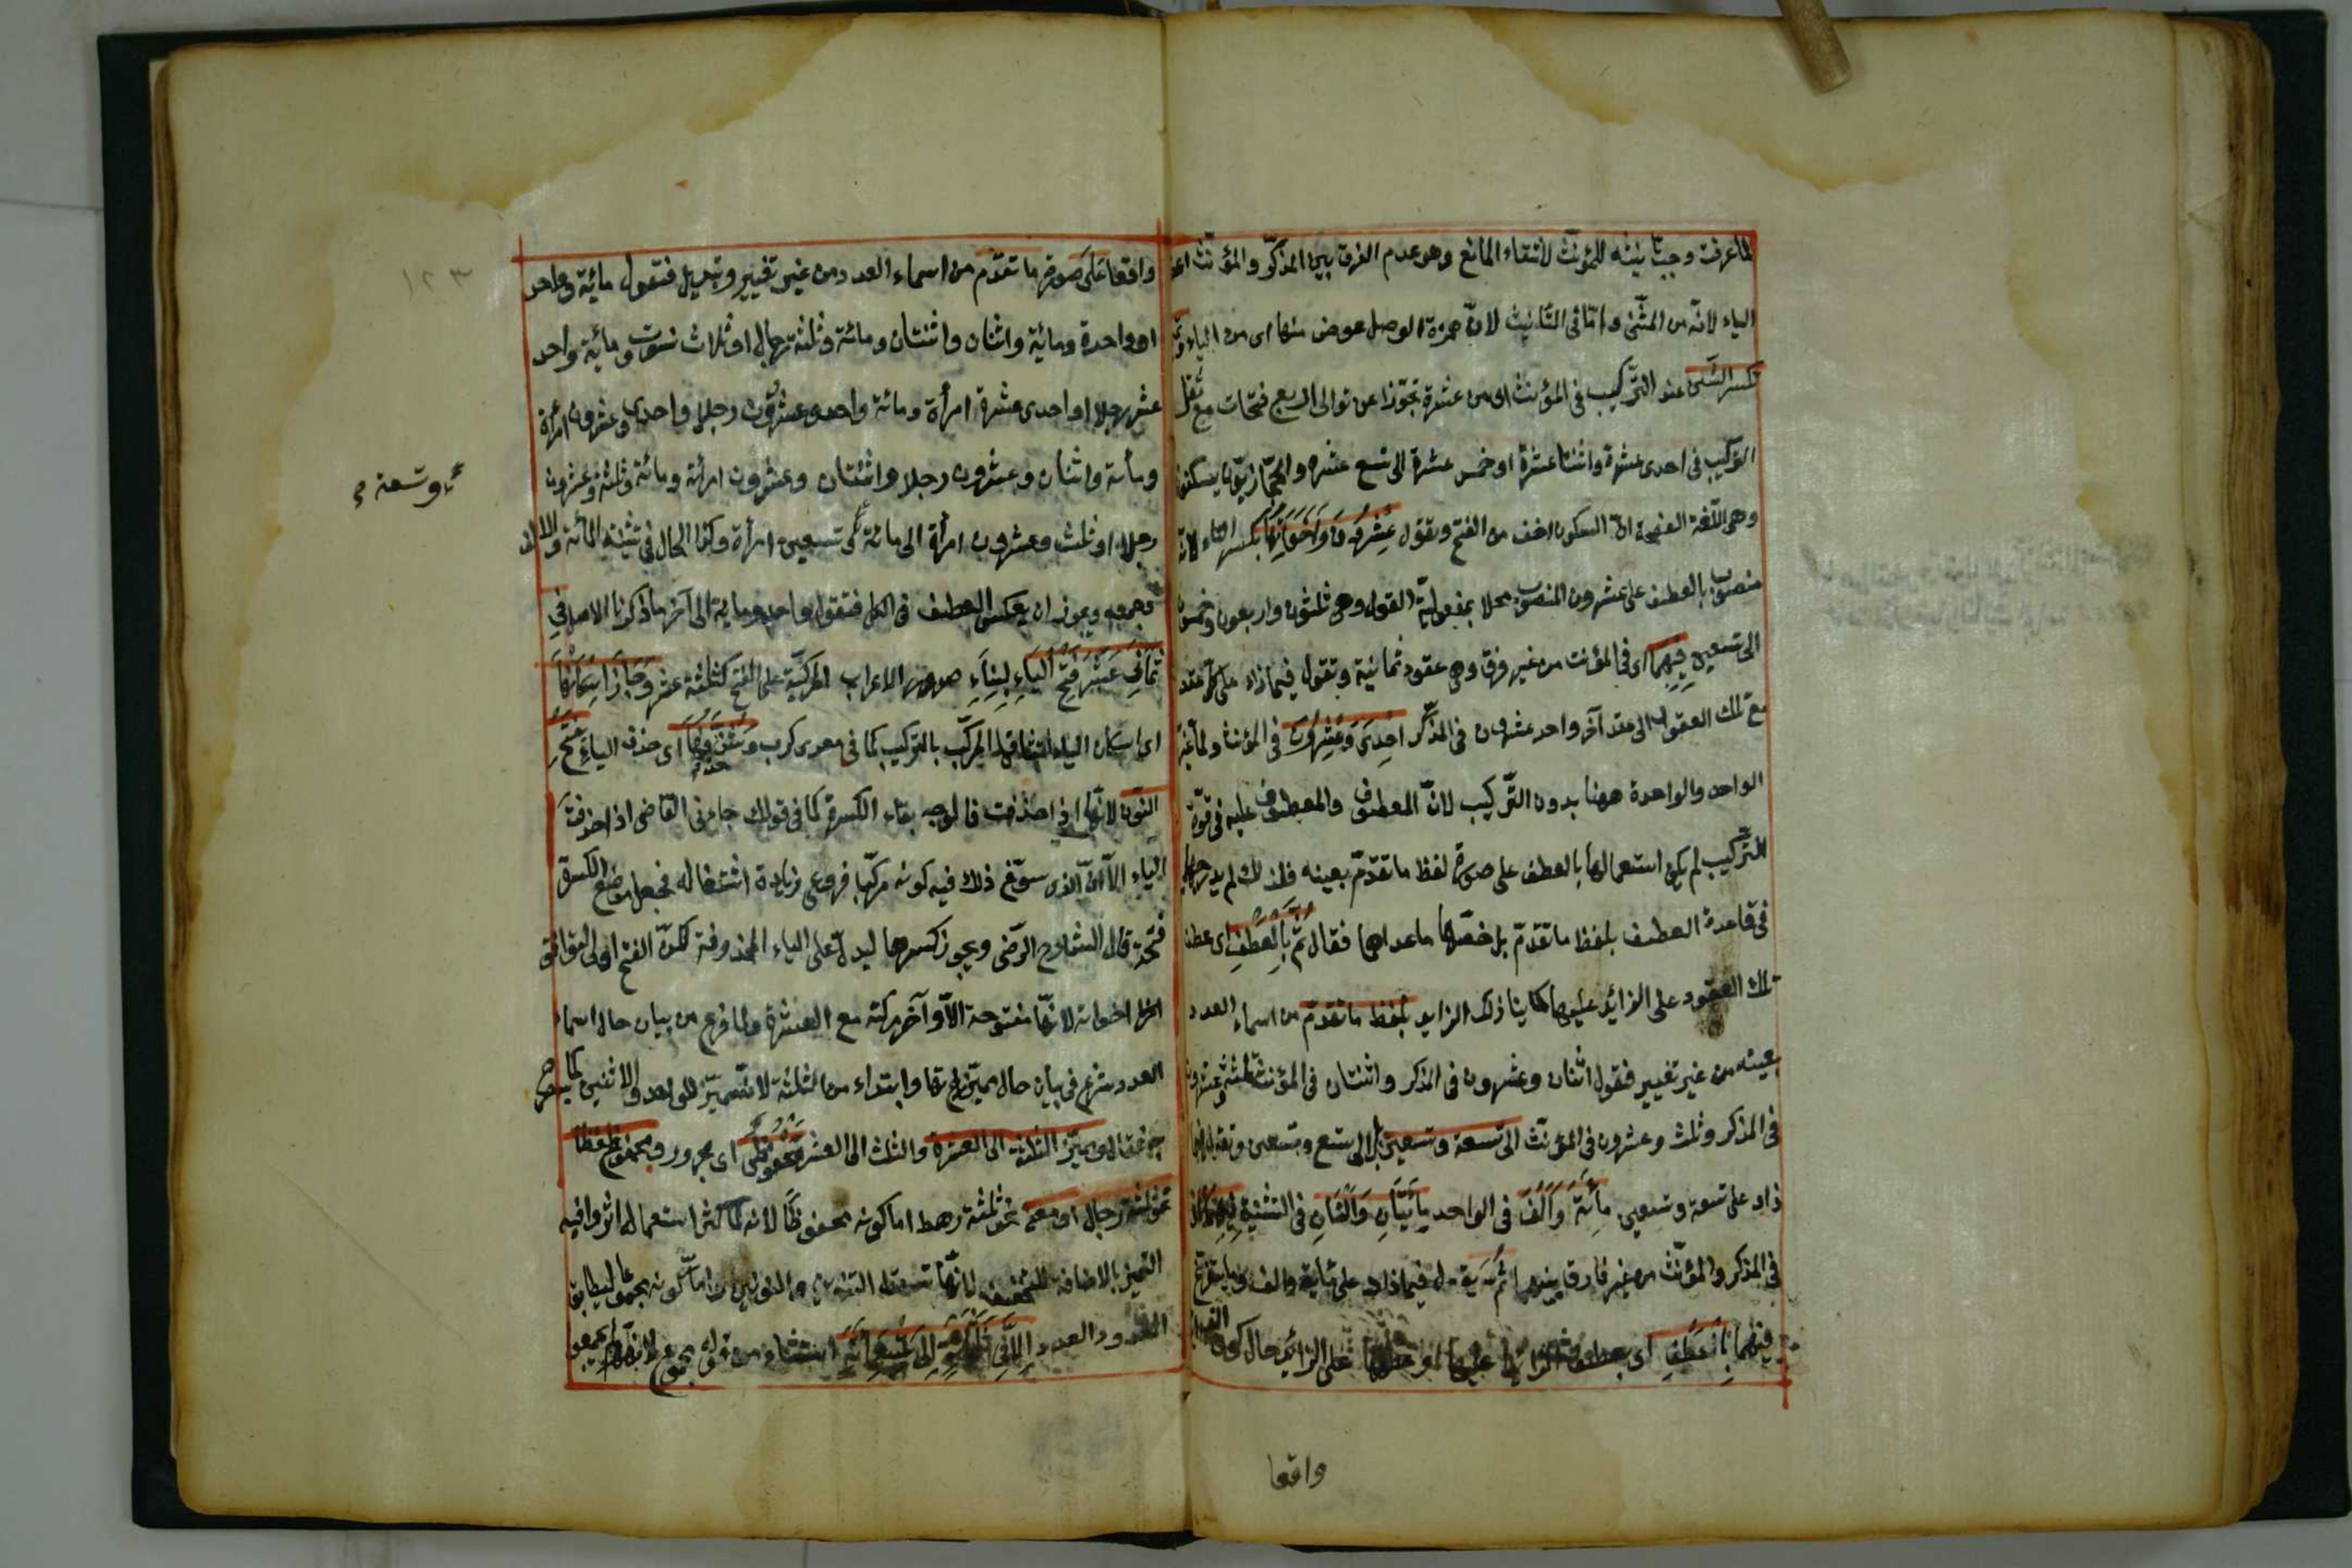 لما عرفت وجب تانيثه للمؤنث لانتفاء المانع وهو عدم الفرق بين المذكر والمؤنث
الياء لانه من المثنى واما فى التانيث لان همزة الوصل عوض منها اى من الياء
تكسر الشين عند التركيب فى المؤنث اى من عشرة تجوزا عن توالى اربع فتحات مع ثقل
التركيب فى احدى عشرة واثنتا عشرة او خمس عشرة الى تسع عشره والحجازيون يسكنون
وهى اللغة الفصيحة اذ السكون اخف من الفتح وتقول عِشْرُونَ وَاَخَوَاتُهَا بكسر التاء لانه
منصوب بالعطف على عشرون المنصوب محلا بمفعولية القول وهى ثلثون واربعون وخمسون
الى تسعين فِيهِمَا اى فى المؤنث من غير فرق وهى عقود ثمانية وتقول فيما زاد على كل عقد
مع تلك العقود الى عقد آخر واحد عشرون فى المذكر اِحْدَى وَعِشْرُونَ فى المؤنث ولما غير
الواحد والواحدة ههنا بدون التركيب لان المعطوف والمعطوف عليه فى قوة
التركيب لم يكن استعمالها بالعطف على صورة لفظ ما تقدم بعينه فلذلك لم يدرجها
فى قاعدة العطف بلفظ ما تقدم بل خصها ما عداهما فقال ثُمَّ بِالْعَطْفِ اى عطف
تلك العقود على الزائد عليها كاينا ذلك الزايد بلفظ ما تقدم من اسماء العدد
بعينه من غير تغيير فقول اثنان وعشرون فى المذكر واثنتان فى المؤنث ثلثة وعشرون
فى المذكر وثلث وعشرون فى المؤنث الى تسعة وتسعين بل الى تسع وتسعين وتقول فيما
زاد على تسعة وتسعين مِائَة وَاَلْف فى الواحد مِائَتَانِ وَاَلْفَانِ فى التثنية فِيهِمَا اى
فى المذكر والمؤنث من غير فارق بينهما ثُمَّ يقول فيما زاد على مائة والف وما يتفرع
فيهما بِالْعَطْفِ اى بعطف الزائد عليها او عطفها على الزائد حال كون
واقعا
واقعا على صورة ما تقدم من اسماء العدد من غير تغيير وتبديل فتقول مائة وواحد
او واحدة ومائة واثنان واثنتان ومائة وثلثة رجال او ثلاث نسوة ومائة واحد
عشر رجلا او احدى عشرة امرأة ومائة واحد وعشرون رجلا واحدى وعشرون امرأة
ومائة واثنان وعشرون رجلا واثنتان وعشرون امرأة ومائة وثلثة وعشرون
رجلا او ثلث وعشرون امرأة الى مائة تسعين امرأة وكذا الحال فى تثنية المائة والالف
وتسعة
وجمعه ويجوز ان يعكس العطف فى الكل فتقول واحد ومائة الى آخر ما ذكرنا الاصل فى
ثَمَانِي عَشَرَ فَتْحُ الْيَاءِ لبناء صدور الاعراب المركبة على الفتح كثلثة عشر وَجَازَ اِسْكَانُهَا
اى اسكان الياء لتثاقل المركب بالتركيب كما فى معدى كرب وَشَذَّ حذفها اى حذف الياء بفتح
النون لانها اذا حذفت فالوجه بقاء الكسرة كما فى قولك جاءنى القاضى اذا حذفت
الياء الا ان الذى سوغ ذلك فيه كونه مركبا فروعى زيادة اشتغاله فجعل موضع الكسرة
فتحة قال الشارح الرضى ويجوز كسرها ليدل على الياء المحذوفة لكن الفتح اولى ليوافق
اخواته لانها مفتوحة الاواخر مركبة مع العشرة ولما فرع من بيان حال اسماء
العدد شرع فى بيان حال مميزاتها وابتداء من الثلثة لانه لا مميز للواحد والاثنين كما
فقال ومميز الثلثة الى العشرة والثلث الى العشر مَخْفُوضٌ اى مجرور ومجموع لفظا
نحو ثلثة رجال او معنى نحو ثلثة رهط اما كونه مخفوظا لانه لما كثر استعماله اثروا فيه
التميز بالاضافة للتخفيف لانها تسقط التنوين والنونين واما كونه مجموعا ليطابق
المعدود العدد اِلَّا فِي ثَلَاثِمِائَة اِلَى تِسْعِمِائَة استثناء من قوله مجموع
١٢٣